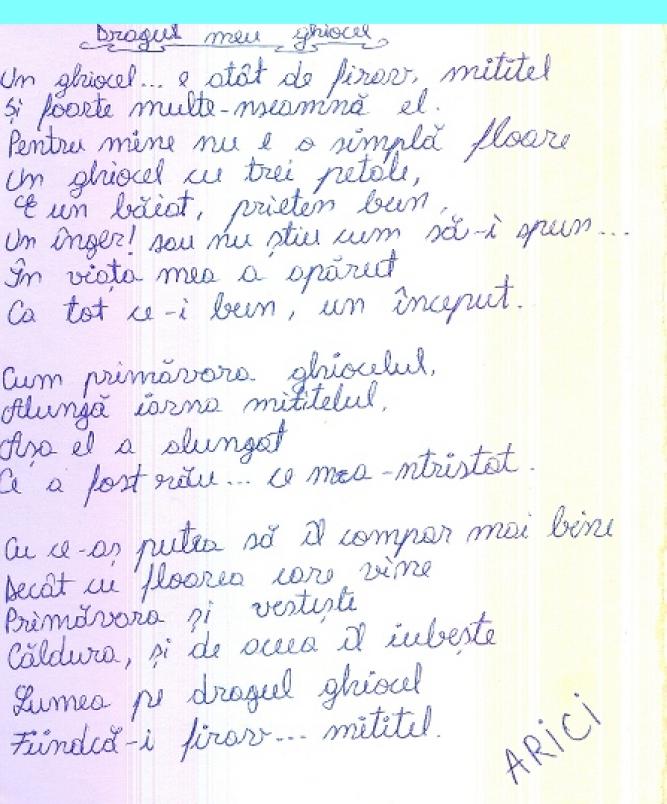 Dragul meu ghiocel
Un ghiocel... e atât de firav, mititel
Și foarte multe-nseamnă el.
Pentru mine nu e o simplă floare
Un ghiocel cu trei petale,
E un băiat, prieten bun,
Un înger! sau nu știu cum să-i spun...
În viața mea a apărut
Ca tot ce-i bun, un început.
Cum primăvara ghiocelul,
Alungă iarna mititelul,
Așa el a alungat
Ce a fost rău... ce mea-ntristat.
Cu ce-aș putea să îl compar mai bine
Decât cu floarea care vine
Primăvara și vestește
Căldura, și de aceea îl iubește
Lumea pe dragul ghiocel
Fiindcă-i firav... mititel.
ARICI